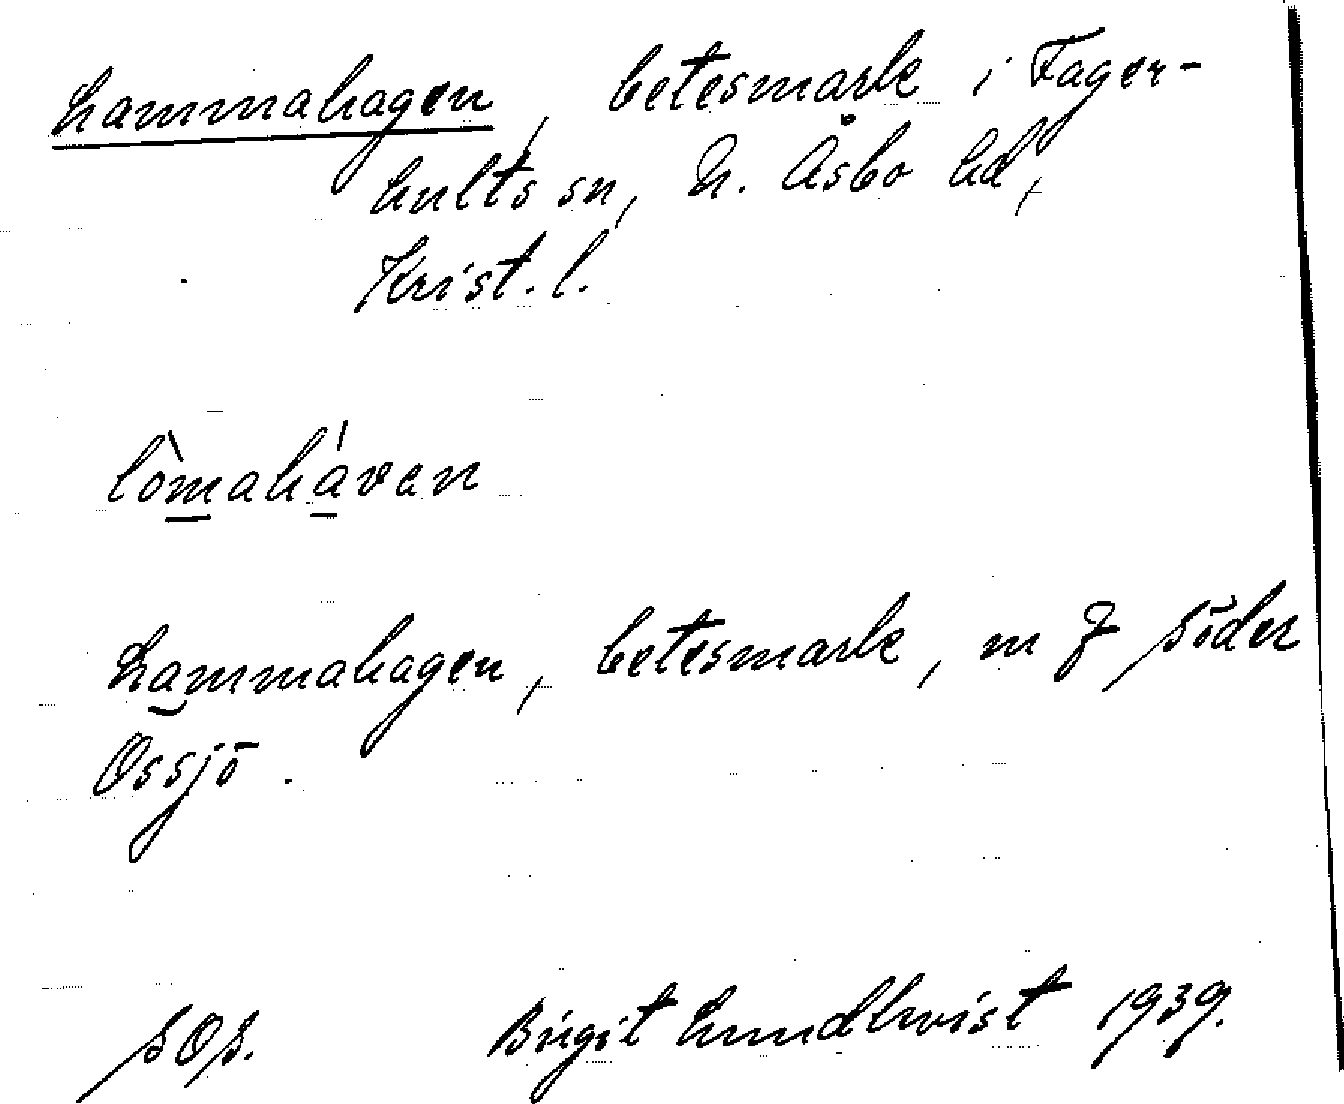 Lammahagen, betesmark i Fager-
hults sn, N. Åsbo hd,
Krist. l.
lòmahávan
Lammahagen, betesmark, m f Söder
Össjö.
SOS. Birgit Lundkvist 1939.